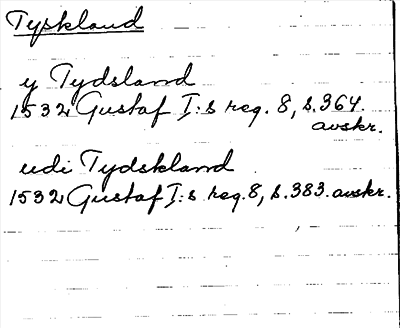 Tyskland
y Tydsland
1532 Gustaf I:s reg. 8, s. 364.
avskr.
udi Tydskland
1532 Gustaf I:s reg. 8, s. 383. avskr.